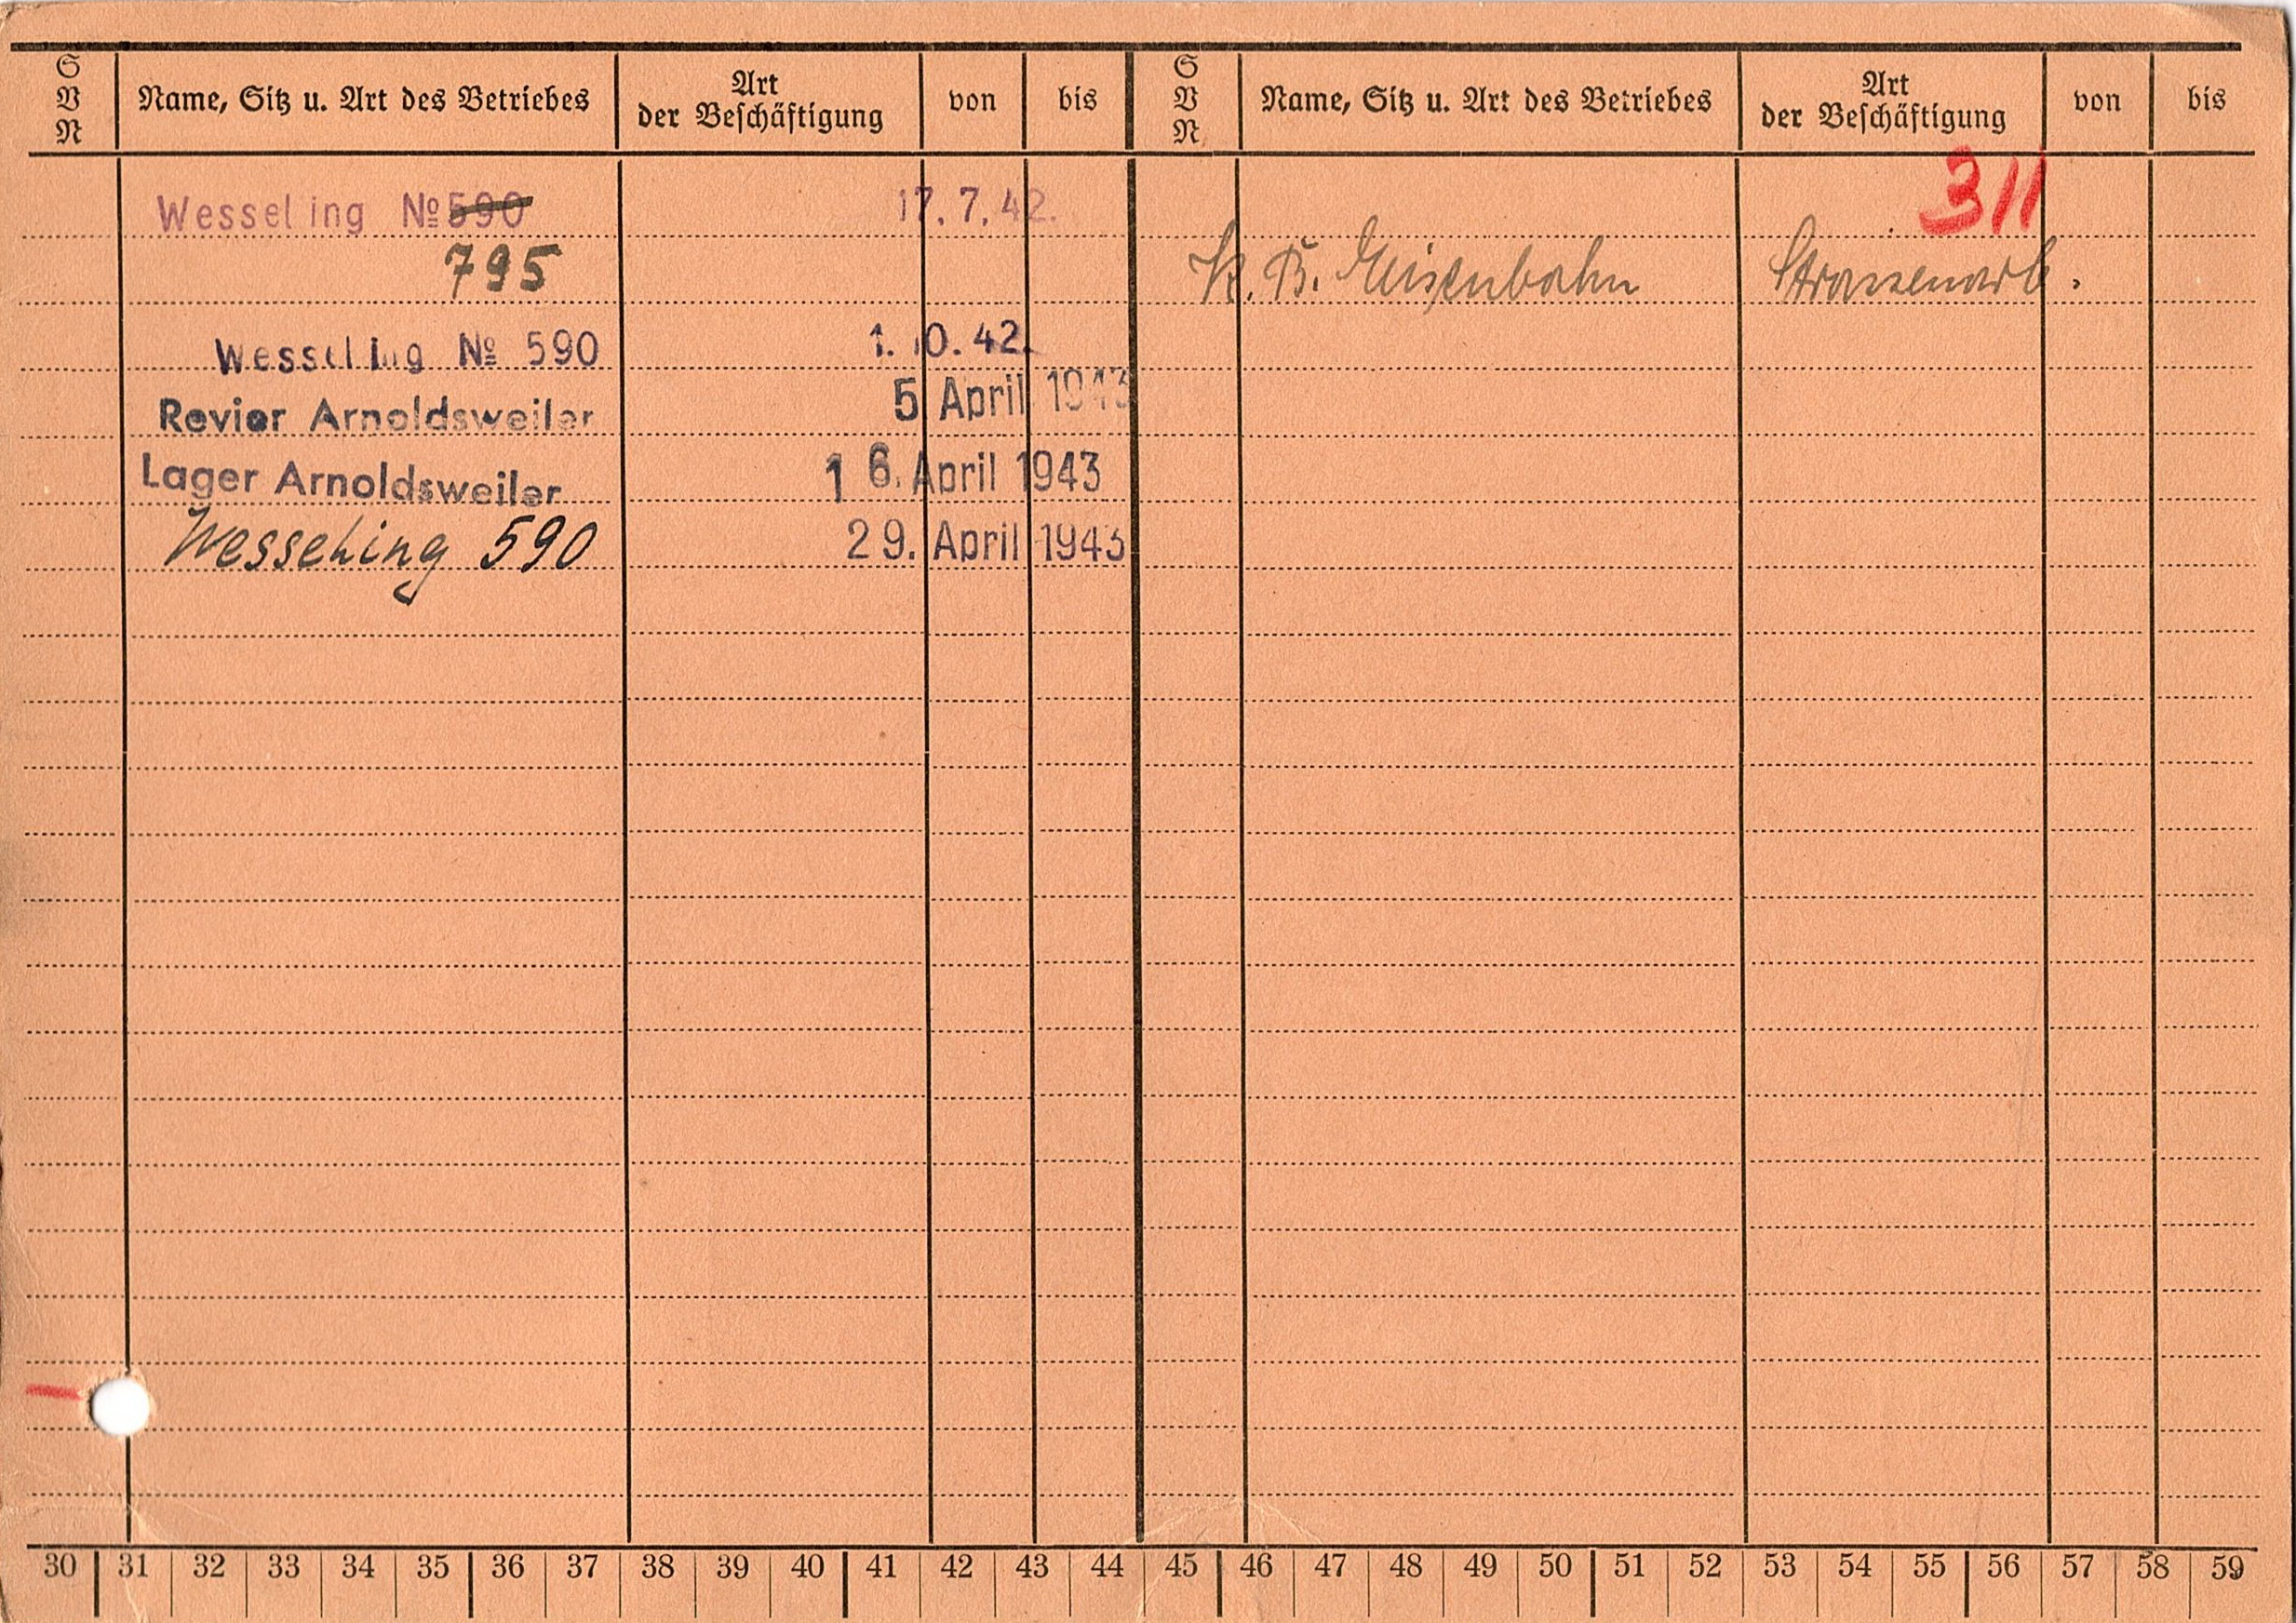 S V N Name, Sitz u. Art des Betriebes Art der Beschäftigung von bis S V N Name, Sitz u. Art des Betriebes Art der Beschäftigung von bis
Wesseling № 590 17. 7. 42.
795
Wesseling № 590 1. 10. 42.
Revier Arnoldsweiler 5 April 1943
Lager Arnoldsweiler 1 6. April 1943
Wesseling 590 29. April 1943
311
K. B. Eisenbahn Strassenarb.
30 31 32 33 34 35 36 37 38 39 40 41 42 43 44 45 46 47 48 49 50 51 52 53 54 55 56 57 58 59